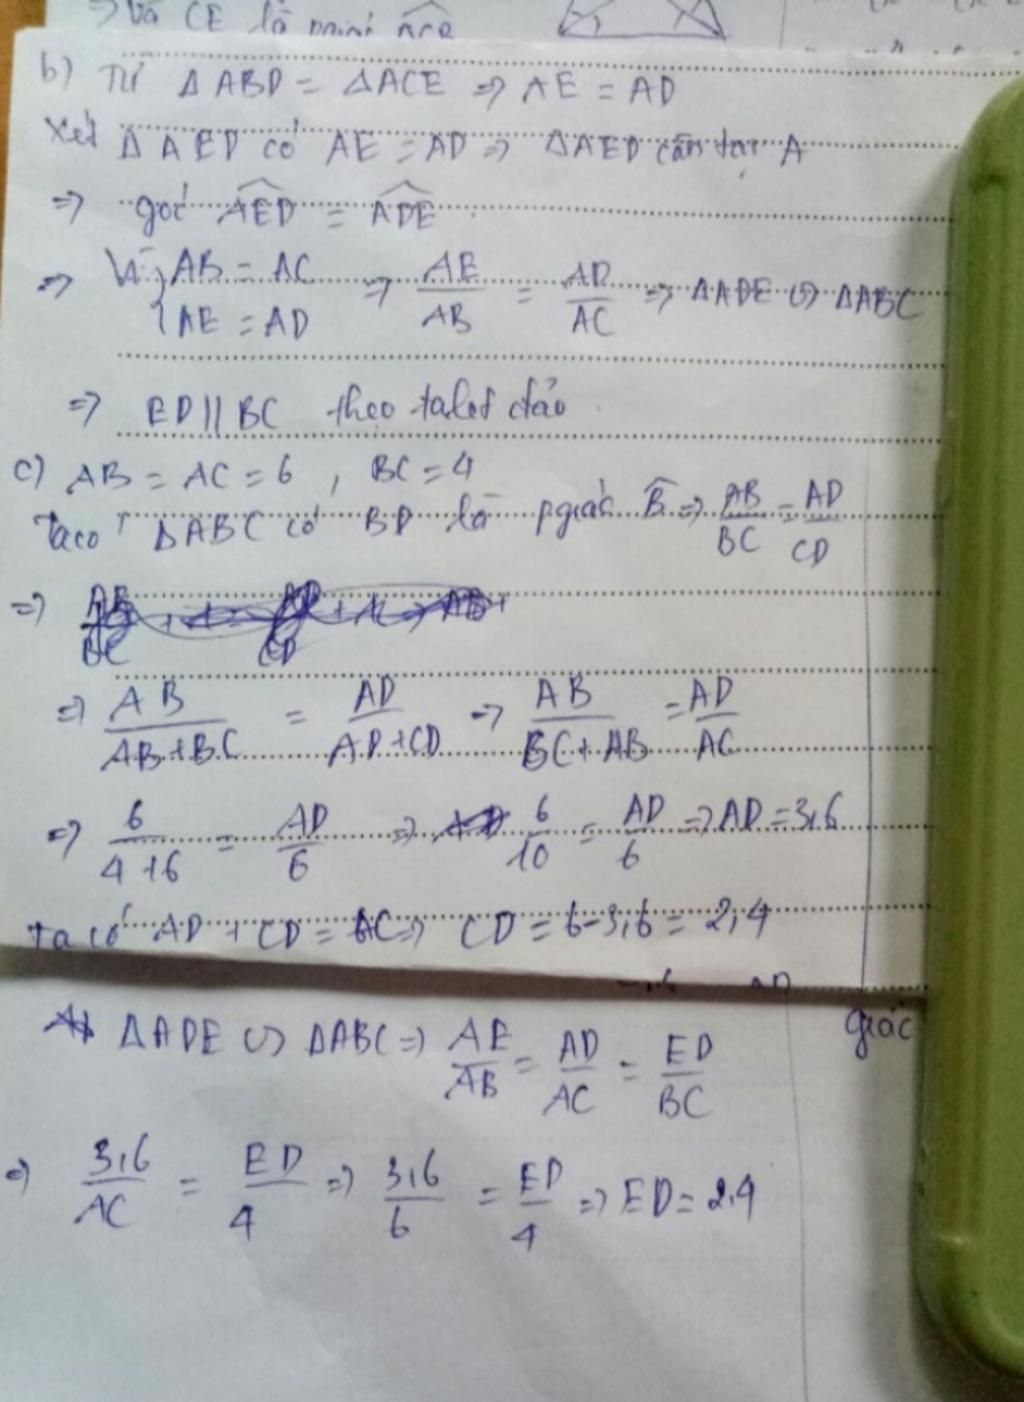 => Và CE là
b) Từ Δ ABD = ΔACE => AE = AD
Xét Δ AED có AE = AD => ΔAED cân tại A
=> góc AED = ADE
=> Vì { AB = AC => AE/AB = AD/AC => ΔADE ∽ ΔABC
AE = AD
=> ED // BC theo talet đảo
c) AB = AC = 6 , BC = 4
Ta có ΔABC có BD là pgiác B => AB/BC = AD/CD
=>
=> AB/(AB+BC) = AD/(AD+CD) => AB/(BC+AB) = AD/AC
=> 6/(4+6) = AD/6 => 6/10 = AD/6 => AD = 3,6
ta có AD + CD = AC => CD = 6-3,6 = 2,4
giác
ΔADE ∽ ΔABC => AE/AB = AD/AC = ED/BC
=> 3,6/AC = ED/4 => 3,6/6 = ED/4 => ED = 2,4